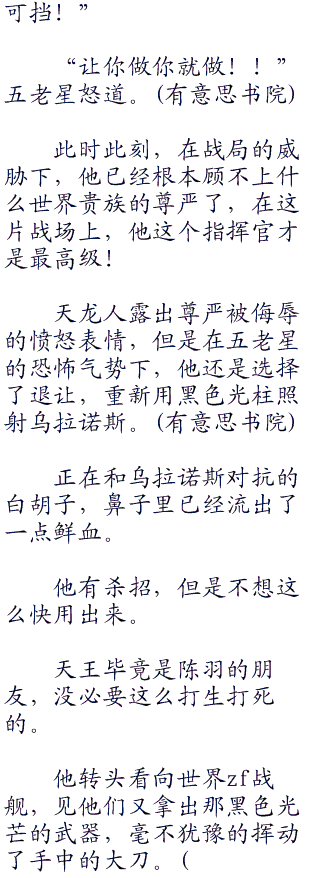 可挡！”
“让你做你就做！！”
五老星怒道。(有意思书院)
此时此刻，在战局的威
胁下，他已经根本顾不上什
么世界贵族的尊严了，在这
片战场上，他这个指挥官才
是最高级！
天龙人露出尊严被侮辱
的愤怒表情，但是在五老星
的恐怖气势下，他还是选择
了退让，重新用黑色光柱照
射乌拉诺斯。(有意思书院)
正在和乌拉诺斯对抗的
白胡子，鼻子里已经流出了
一点鲜血。
他有杀招，但是不想这
么快用出来。
天王毕竟是陈羽的朋
友，没必要这么打生打死
的。
他转头看向世界zf战
舰，见他们又拿出那黑色光
芒的武器，毫不犹豫的挥动
了手中的大刀。(